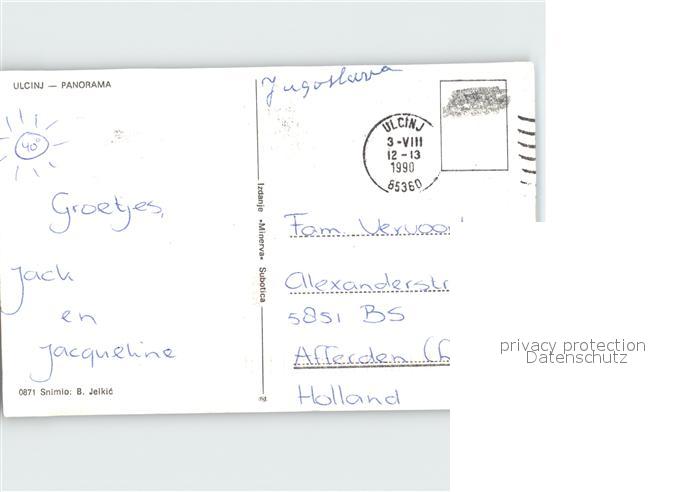 ULCINJ — PANORAMA
Jugoslavia
40°
ULCINJ
3-VIII
12-13
1990
85360
Groetjes,
Jack
en
Jacqueline
Izdanje »Minerva« Subotica
Fam.
Alexanderstr
5851 BS
Afferden (
Holland
0871 Snimio: B. Jelkić
privacy protection
Datenschutz